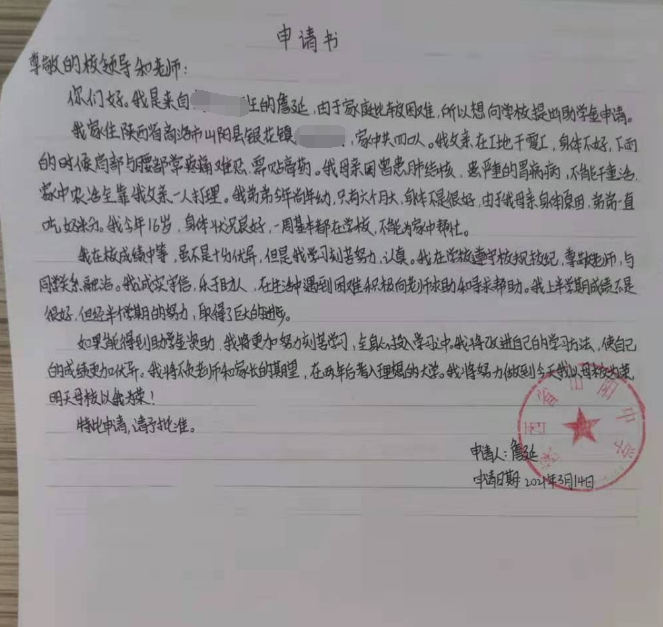 申请书
尊敬的校领导和老师：
你们好。我是来自生的詹延，由于家庭比较困难，所以想向学校提出助学金申请。
我家住陕西省商洛市山阳县银花镇，家中共四口人。我父亲在工地干零工，身体不好，下雨
的时候肩部与腰部常疼痛难忍，需贴膏药。我母亲因曾患肺结核，患严重的胃病，不能干重活，
家中农活全靠我父亲一人打理。我弟弟今年尚年幼，只有六个月大，身体不是很好，由于我母亲身体原因，弟弟一直
吃奶粉。我今年16岁，身体状况良好，一周基本都在学校，不能为家中帮忙。
我在校成绩中等，虽不是十分优异，但是我学习刻苦努力，认真。我在学校遵守校规校纪，尊敬老师，与
同学关系融洽。我诚实守信，乐于助人，在生活中遇到困难积极向老师求助和寻求帮助。我上半学期成绩不是
很好，但经半学期的努力，取得了巨大的进步。
如果能得到助学金资助，我将更加努力刻苦学习，全身心投入学习中。我将改进自己的学习方法，使自己
的成绩更加优异。我将不负老师和家长的期望，在两年后考入理想的大学。我将努力做到今天我以母校为荣
明天母校以我为荣！
特此申请，请予批准。
申请人：詹延
申请日期 2021年3月14日